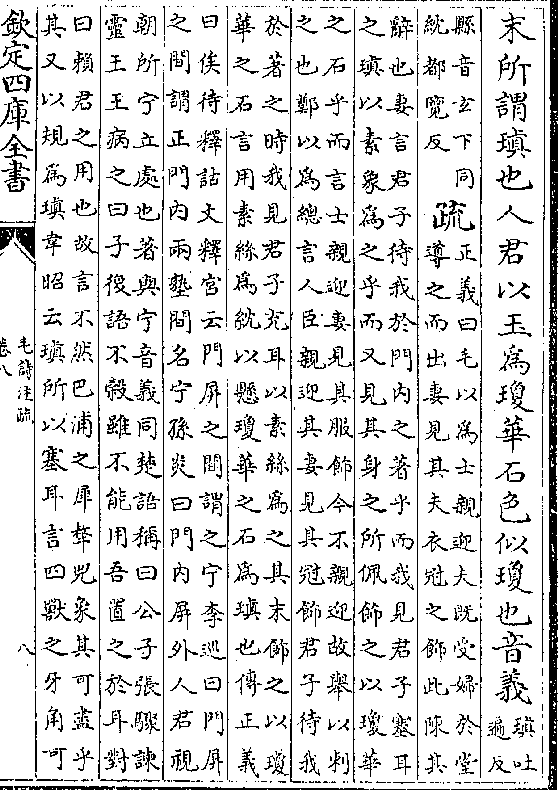 末所謂瑱也人君以玉為瓊華石色似瓊也音義瑱吐遍反
縣音玄下同
紞都覽反
疏
正義曰毛以為士親迎夫既受婦於堂
導之而出妻見其夫衣冠之飾此陳其
辭也妻言君子待我於門內之著乎而我見君子塞耳
之瑱以素象為之乎而又見其身之所佩飾之以瓊華
之石乎而言士親迎妻見其服飾今不親迎故舉以刺
之也鄭以為總言人臣親迎其妻見其冠飾君子待我
於著之時我見君子充耳以素絲為之其末飾之以瓊
華之石言用素絲為紞以懸瓊華之石為瑱也傳正義
曰俟待釋詁文釋宮云門屏之間謂之宁李巡曰門屏
之間謂正門內兩塾間名宁孫炎曰門內屏外人君視
朝所宁立處也著與宁音義同楚語稱曰公子張驟諫
靈王王病之曰子復語不穀雖不能用吾置之於耳對
曰賴君之用也故言不然巴浦之犀犛兕象其可盡乎
其又以規為瑱韋昭云瑱所以塞耳言四獸之牙角可
欽定四庫全書
毛詩注疏
卷八
八